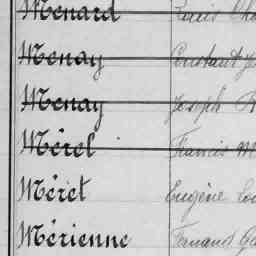 Menard Louis
Menay Constant
Menay Joseph
Mérel Francis
Méret Eugène
Mérienne Fernand